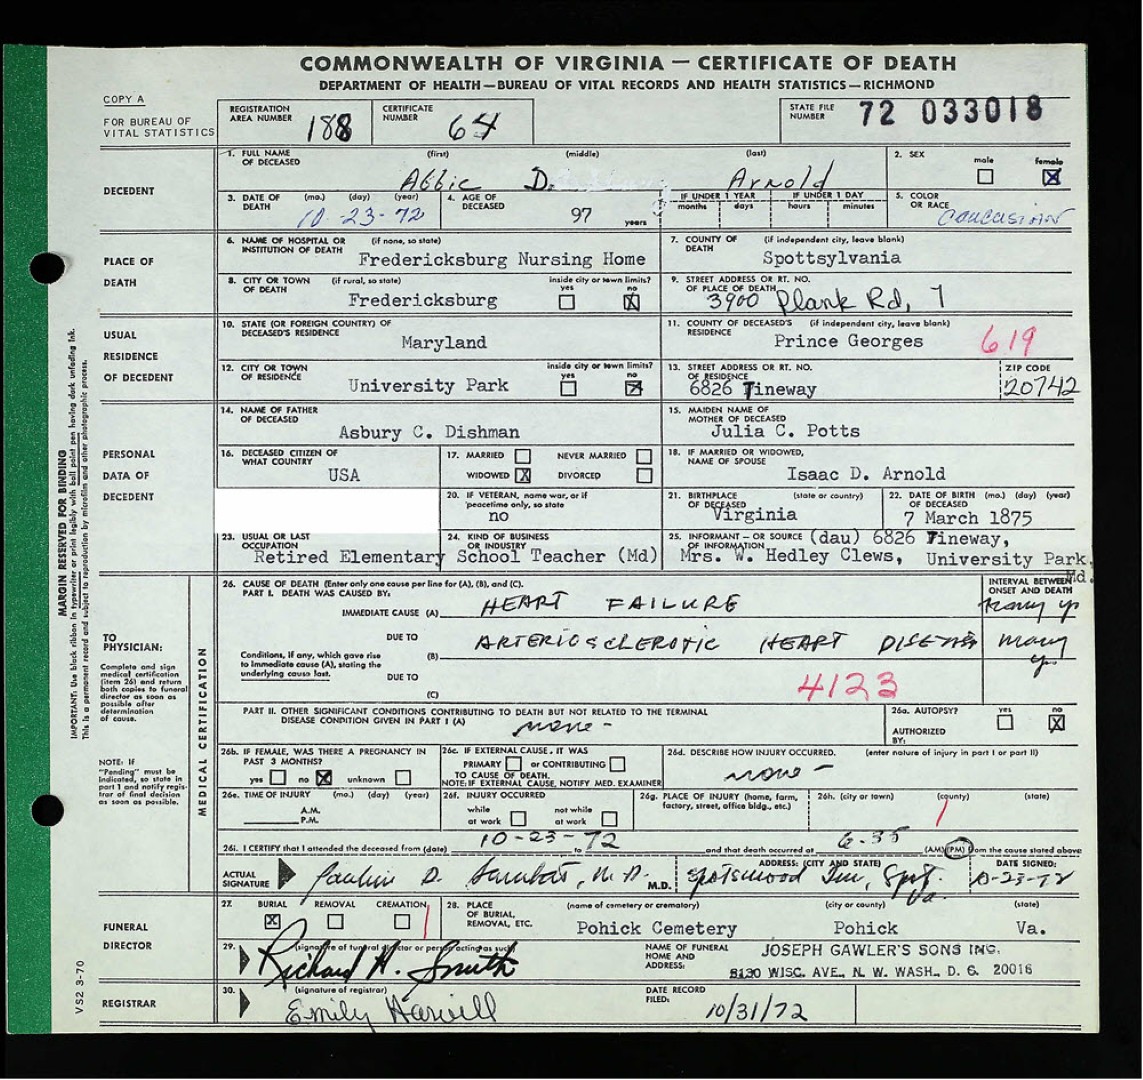 COMMONWEALTH OF VIRGINIA — CERTIFICATE OF DEATH
DEPARTMENT OF HEALTH—BUREAU OF VITAL RECORDS AND HEALTH STATISTICS—RICHMOND
COPY A
FOR BUREAU OF VITAL STATISTICS
REGISTRATION AREA NUMBER 188
CERTIFICATE NUMBER 64
STATE FILE NUMBER 72 033018
DECEDENT
1. FULL NAME OF DECEASED (first) (middle) (last)
Abbie D. Arnold
2. SEX male female
3. DATE OF DEATH (mo.) (day) (year) 10-23-72
4. AGE OF DECEASED 97 years
IF UNDER 1 YEAR months days
IF UNDER 1 DAY hours minutes
5. COLOR OR RACE Caucasian
PLACE OF DEATH
6. NAME OF HOSPITAL OR INSTITUTION OF DEATH (if none, so state)
Fredericksburg Nursing Home
7. COUNTY OF DEATH (if independent city, leave blank)
Spottsylvania
8. CITY OR TOWN OF DEATH (if rural, so state) inside city or town limits? yes no
Fredericksburg
9. STREET ADDRESS OR RT. NO. OF PLACE OF DEATH
3900 Plank Rd,
USUAL RESIDENCE OF DECEDENT
10. STATE (OR FOREIGN COUNTRY) OF DECEASED'S RESIDENCE
Maryland
11. COUNTY OF DECEASED'S RESIDENCE (if independent city, leave blank)
Prince Georges 619
12. CITY OR TOWN OF RESIDENCE inside city or town limits? yes no
University Park
13. STREET ADDRESS OR RT. NO. OF RESIDENCE
6826 Pineway
ZIP CODE 20742
PERSONAL DATA OF DECEDENT
14. NAME OF FATHER OF DECEASED
Asbury C. Dishman
15. MAIDEN NAME OF MOTHER OF DECEASED
Julia C. Potts
16. DECEASED CITIZEN OF WHAT COUNTRY
USA
17. MARRIED NEVER MARRIED
WIDOWED DIVORCED
18. IF MARRIED OR WIDOWED, NAME OF SPOUSE
Isaac D. Arnold
20. IF VETERAN, name war, or if peacetime only, so state
no
21. BIRTHPLACE OF DECEASED (state or country)
Virginia
22. DATE OF BIRTH OF DECEASED (mo.) (day) (year)
7 March 1875
23. USUAL OR LAST OCCUPATION
24. KIND OF BUSINESS OR INDUSTRY
Retired Elementary School Teacher (Md)
25. INFORMANT - OR SOURCE OF INFORMATION (dau) 6826 Pineway,
Mrs. W. Hedley Clews, University Park, Md.
MARGIN RESERVED FOR BINDING
IMPORTANT: Use black ribbon in typewriter or print legibly with ball point pen having dark unfading ink.
This is a permanent record and subject to reproduction by microfilm and other photographic process.
TO PHYSICIAN:
Complete and sign medical certification (item 26) and return both copies to funeral director as soon as possible after determination of cause.
NOTE: If "Pending" must be indicated, so state in part 1 and notify registrar of final decision as soon as possible.
MEDICAL CERTIFICATION
26. CAUSE OF DEATH (Enter only one cause per line for (A), (B), and (C).
PART I. DEATH WAS CAUSED BY:
INTERVAL BETWEEN ONSET AND DEATH
IMMEDIATE CAUSE (A) HEART FAILURE many yrs
DUE TO
(B) ARTERIOSCLEROTIC HEART DISEASE many yrs
Conditions, if any, which gave rise to immediate cause (A), stating the underlying cause last.
DUE TO
(C) 4123
PART II. OTHER SIGNIFICANT CONDITIONS CONTRIBUTING TO DEATH BUT NOT RELATED TO THE TERMINAL DISEASE CONDITION GIVEN IN PART I (A)
none -
26a. AUTOPSY? yes no
AUTHORIZED BY:
26b. IF FEMALE, WAS THERE A PREGNANCY IN PAST 3 MONTHS?
yes no unknown
26c. IF EXTERNAL CAUSE, IT WAS
PRIMARY or CONTRIBUTING
TO CAUSE OF DEATH.
NOTE: IF EXTERNAL CAUSE, NOTIFY MED. EXAMINER
26d. DESCRIBE HOW INJURY OCCURRED. (enter nature of injury in part I or part II)
none -
26e. TIME OF INJURY (mo.) (day) (year)
A.M.
P.M.
26f. INJURY OCCURRED
while at work not while at work
26g. PLACE OF INJURY (home, farm, factory, street, office bldg., etc.)
26h. (city or town) (county) (state)
26i. I CERTIFY that I attended the deceased from (date) 10-23-72 to and that death occurred at 6.35 (AM) (PM) from the cause stated above
ACTUAL SIGNATURE M.D.
ADDRESS: (CITY AND STATE)
DATE SIGNED: 10-23-72
FUNERAL DIRECTOR
27. BURIAL REMOVAL CREMATION
28. PLACE OF BURIAL, REMOVAL, ETC.
(name of cemetery or crematory) (city or county) (state)
Pohick Cemetery Pohick Va.
29. (signature of funeral director or person acting as such)
Richard H. Smith
NAME OF FUNERAL HOME AND ADDRESS:
JOSEPH GAWLER'S SONS INC.
5130 WISC. AVE., N. W. WASH., D. C. 20016
REGISTRAR
30. (signature of registrar)
Emily Harvill
DATE RECORD FILED: 10/31/72
VS2 3-70